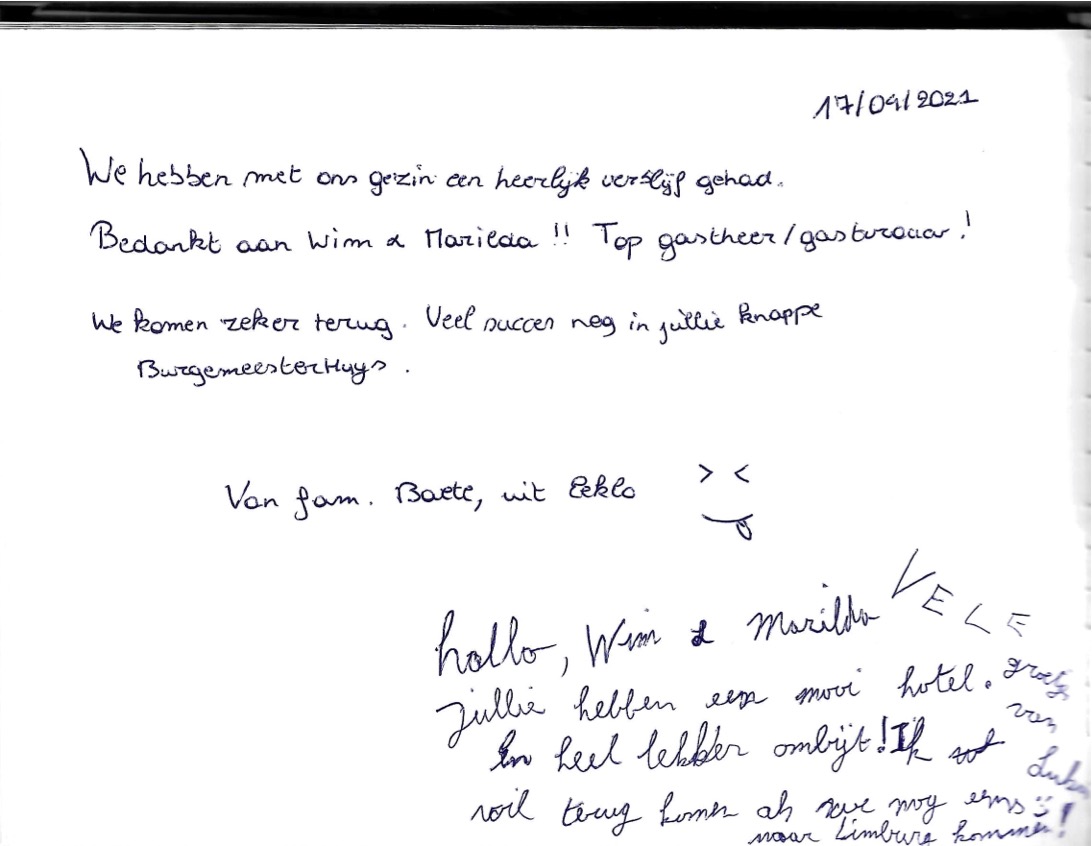 17/04/2021
We hebben met ons gezin een heerlijk verblijf gehad.
Bedankt aan Wim & Marilda !! Top gastheer/gastvrouw!
We komen zeker terug. Veel succes nog in jullie knappe
BurgemeesterHuys.
Van fam. Baete, uit Eeklo
hallo, Wim & Marilda
jullie hebben een mooi hotel.
En heel lekker ombijt! Ik
wil terug komen als we nog eens
naar Limburg kommen!
VELE
groetjes
van